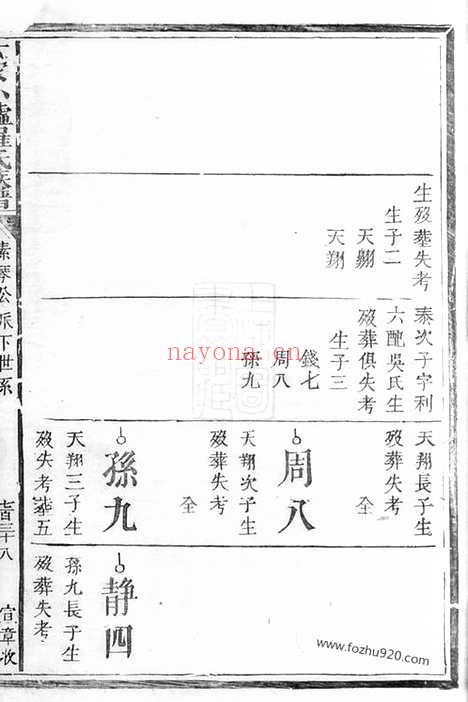 生歿葬失考
生子二
天翾
天翔
泰次子字利
六配吳氏生
歿葬俱失考
生子三
錢七
周八
孫九
天翔長子生
歿葬失考
全
周八
天翔次子生
歿葬失考
全
孫九
天翔三子生
歿失考葬五
靜四
孫九長子生
歿葬失考
羅氏族譜
素琴公派下世系
宜章收
nayona.cn
www.fozhu920.com